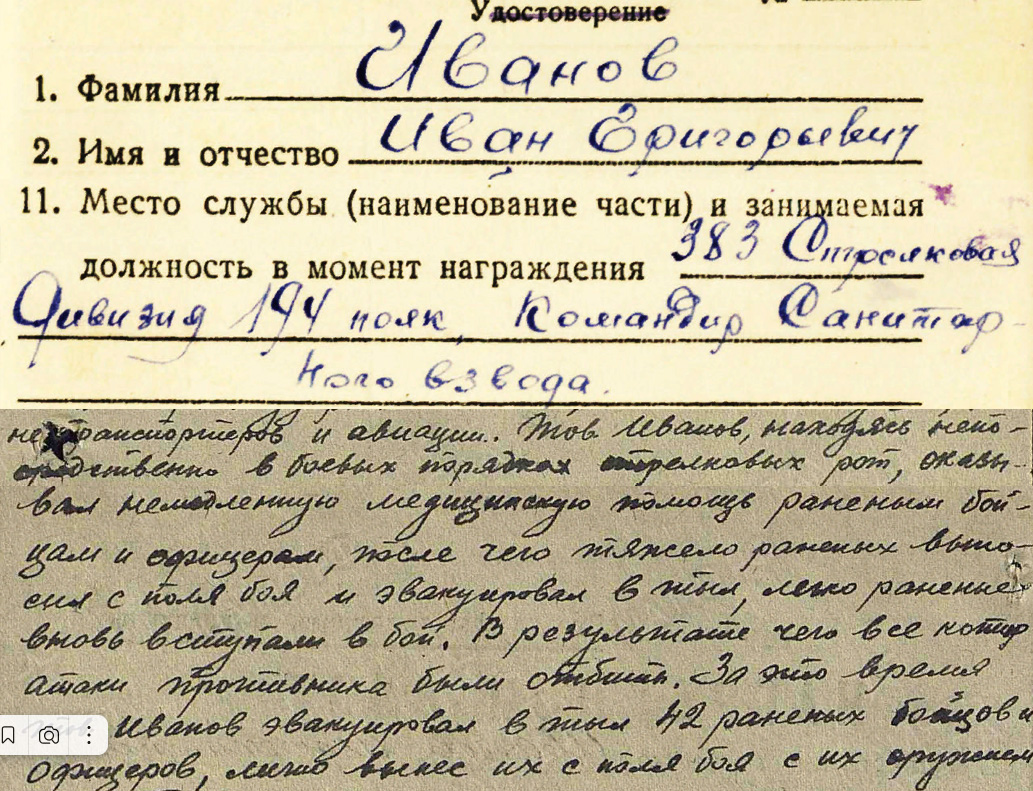 Удостоверение
1. Фамилия Иванов
2. Имя и отчество Иван Григорьевич
11. Место службы (наименование части) и занимаемая
должность в момент награждения 383 Стрелковая
Дивизия 194 полк, Командир Санитар-
ного взвода.
нетранспортеров и авиации. Тов Иванов, находясь непо-
средственно в боевых порядках стрелковых рот, оказы-
вал немедленную медицинскую помощь раненым бой-
цам и офицерам, после чего тяжело раненых выно-
сил с поля боя и эвакуировал в тыл, легко раненные
вновь вступали в бой. В результате чего все контр
атаки противника были отбиты. За это время
Иванов эвакуировал в тыл 42 раненых бойцов и
офицеров, лично вынес их с поля боя с их оружием